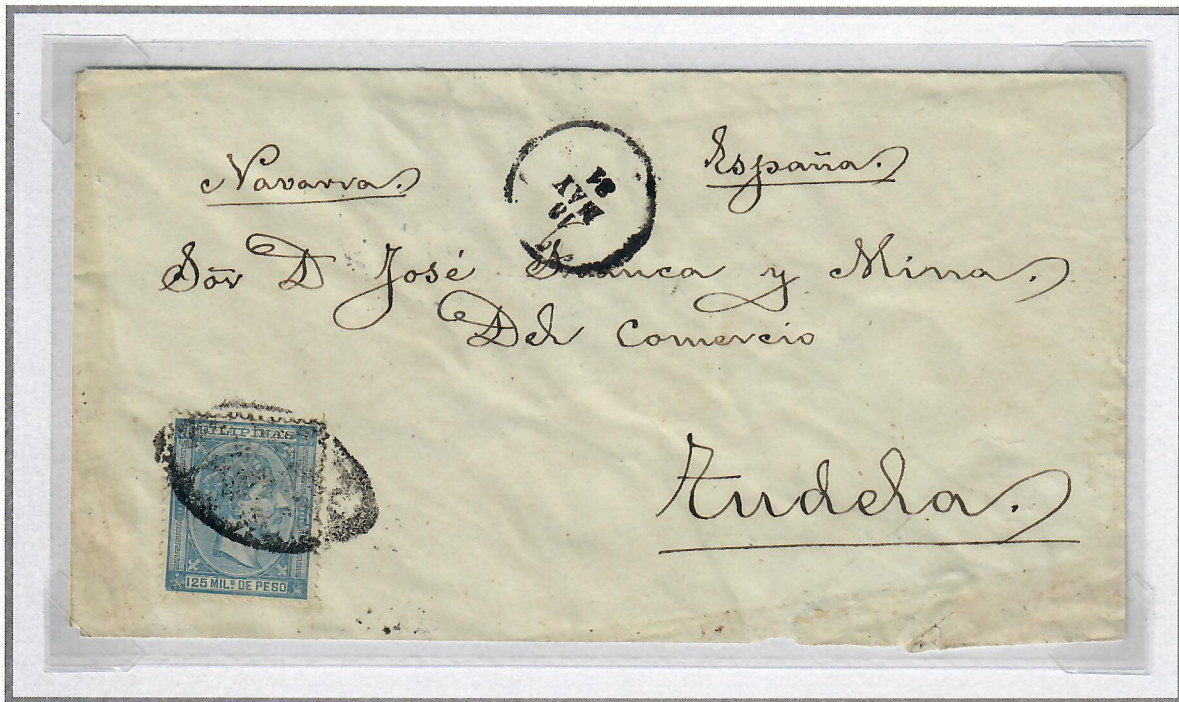 Navarra. España.
Sor D José Franca y Mina.
Del Comercio
Tudela.
MAY
81
FILIPINAS
125 MILS DE PESO